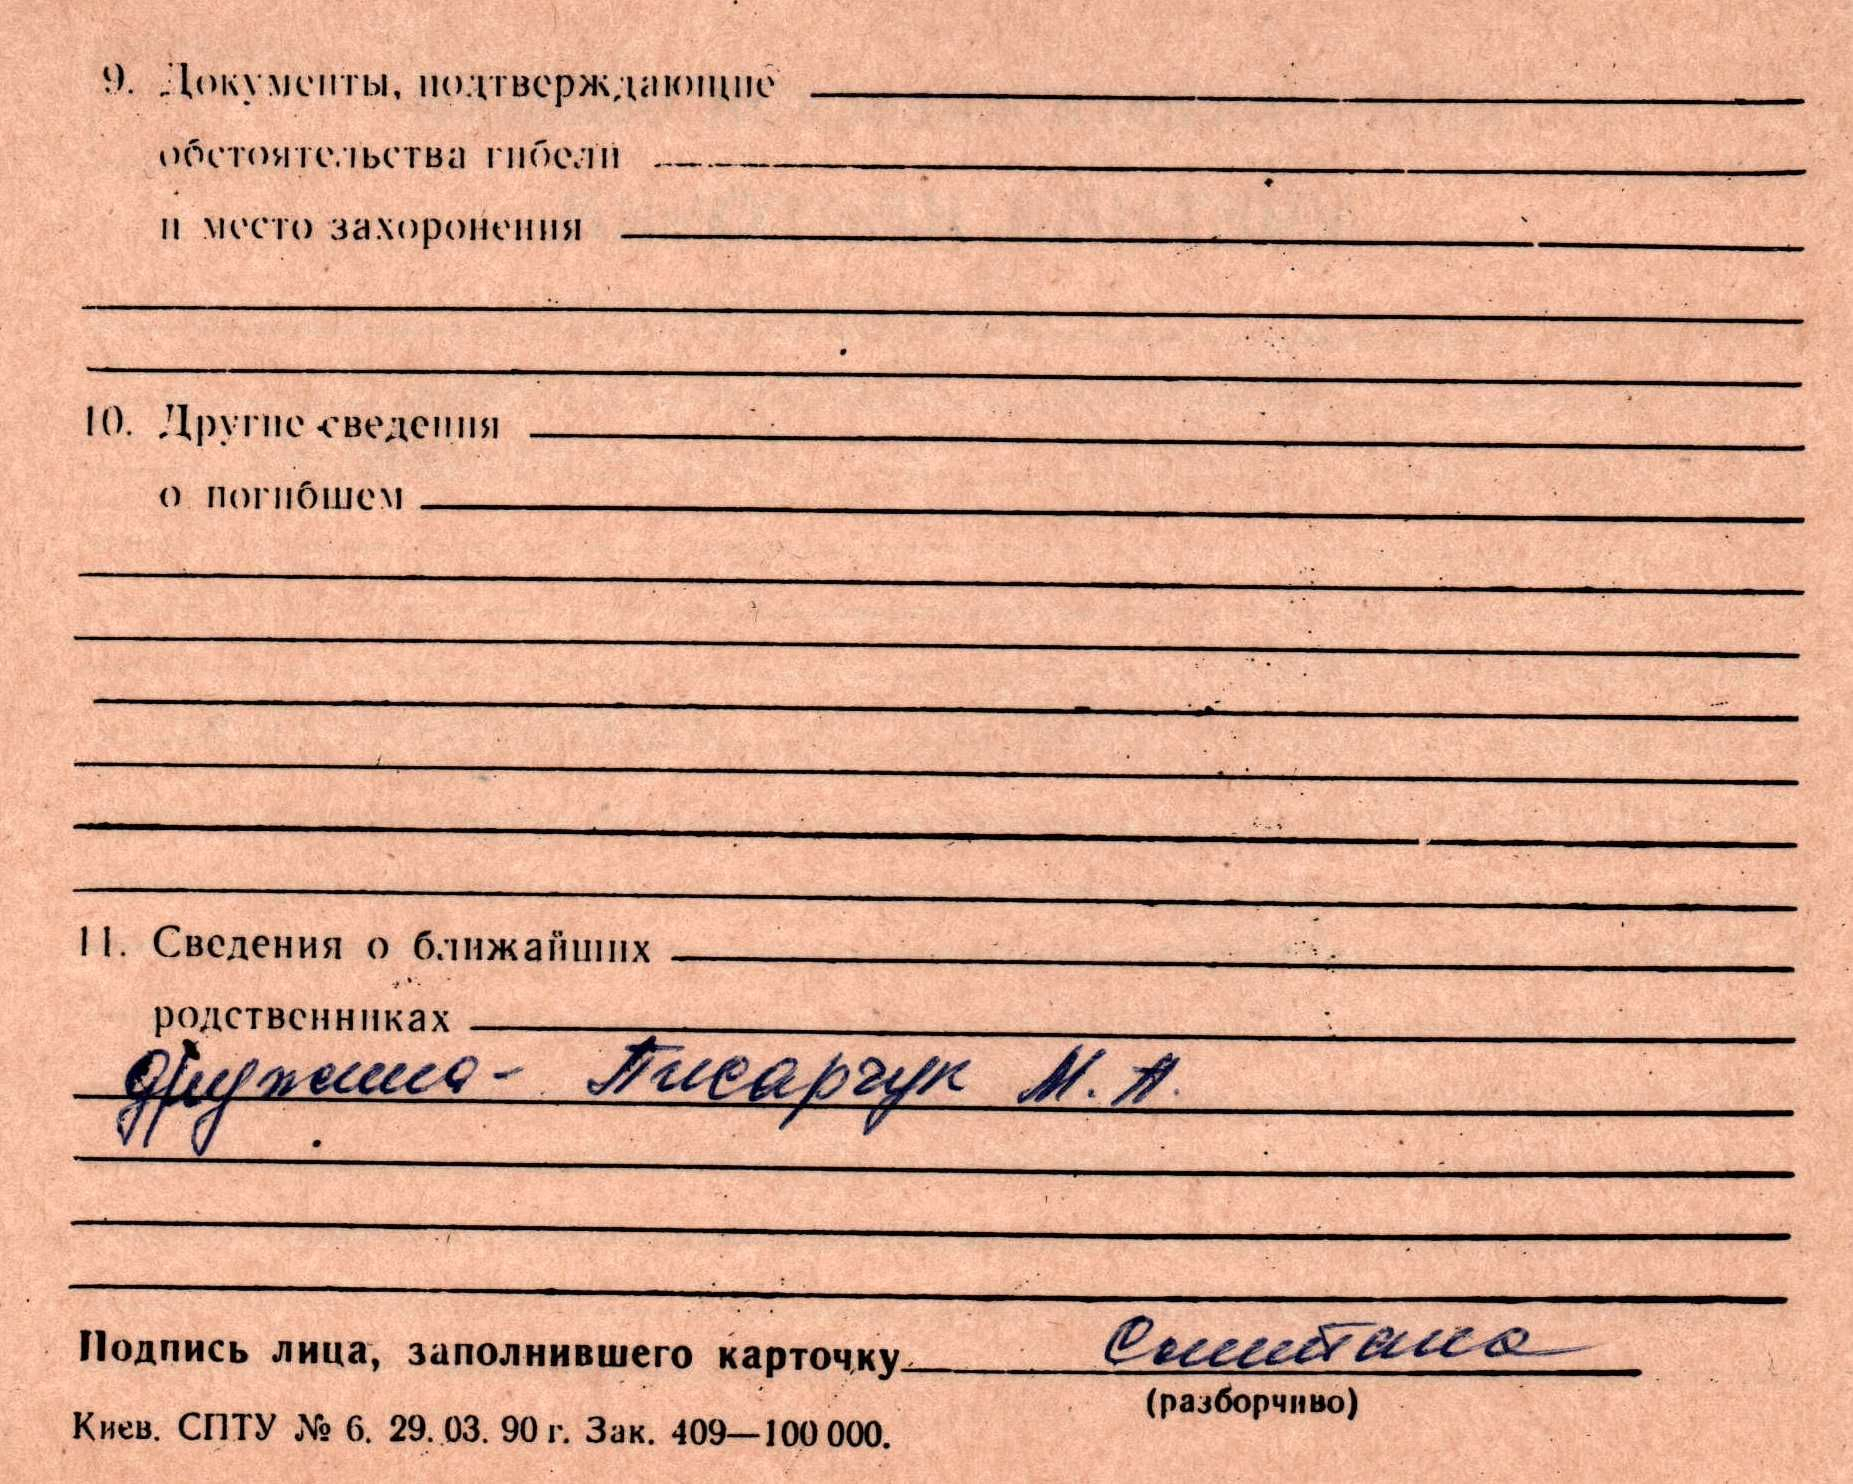 9. Документы, подтверждающие
обстоятельства гибели
и место захоронения
10. Другие сведения
о погибшем
11. Сведения о ближайших
родственниках
дружина - Писарчук М. А.
Подпись лица, заполнившего карточку
(разборчиво)
Киев. СПТУ № 6. 29. 03. 90 г. Зак. 409—100 000.